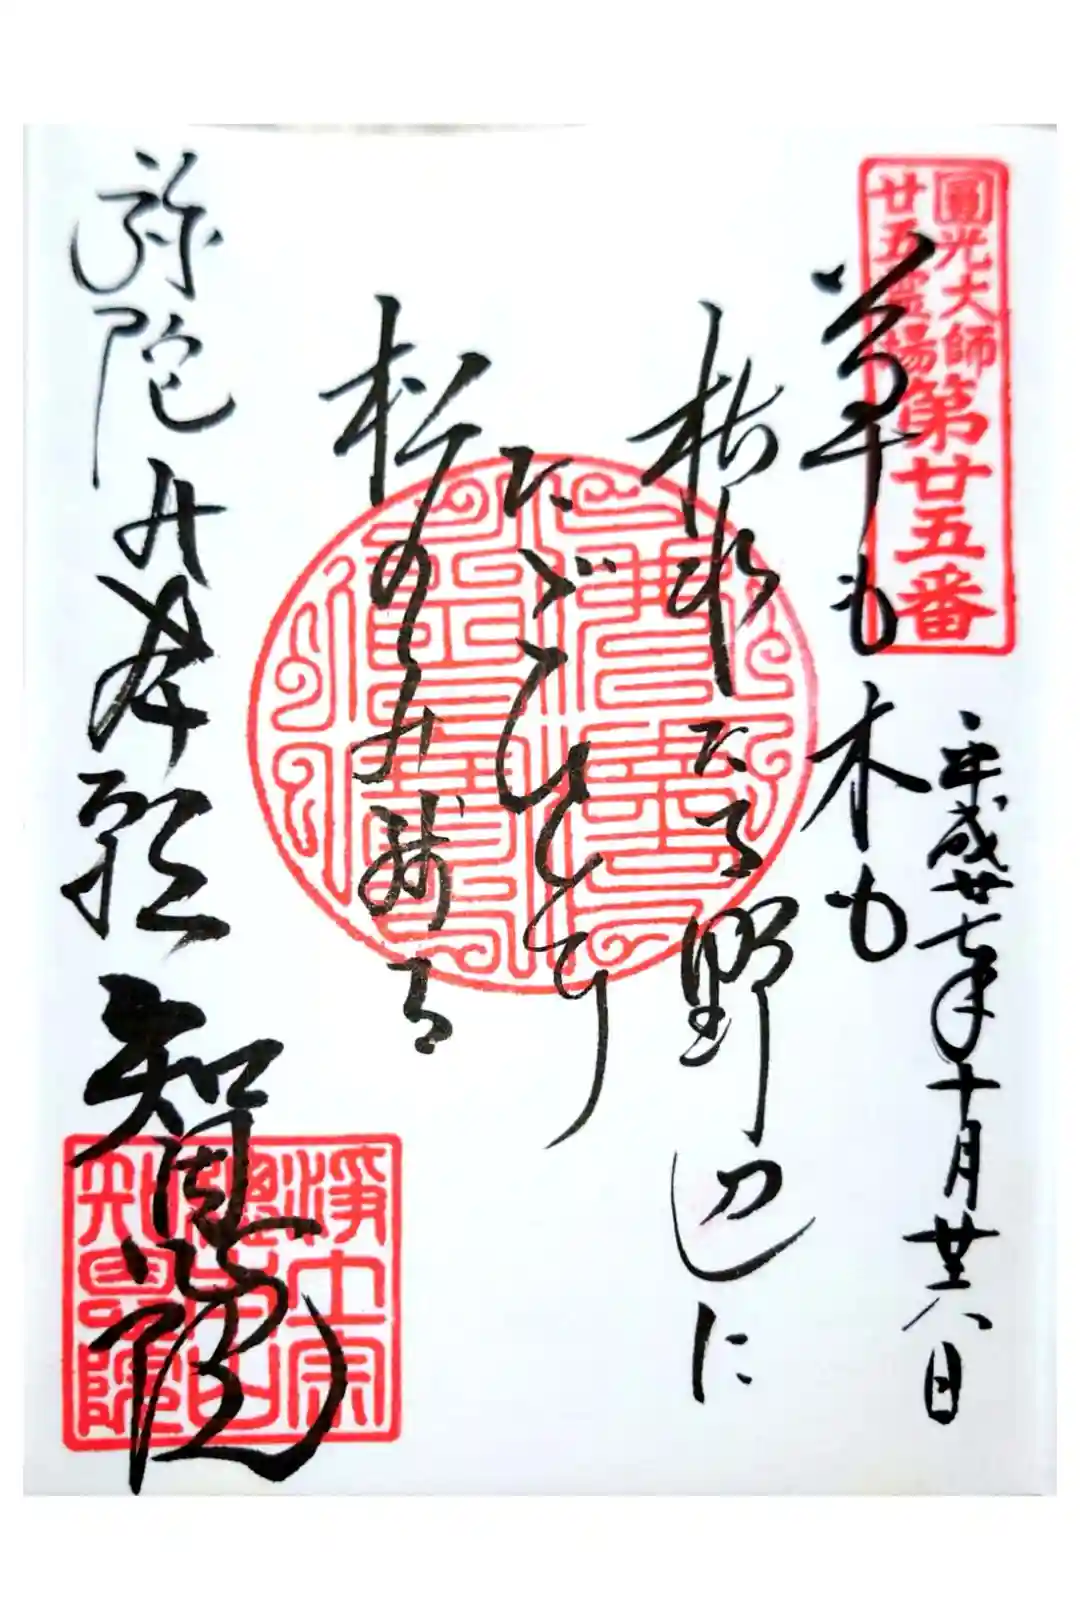 圓光大師
廿五霊場
第廿五番
平成廿七年十月廿八日
草も木も
枯れたる野辺に
たゞひとり
松のみ残る
弥陀の本願
知恩院
淨土宗
總本山
知恩院